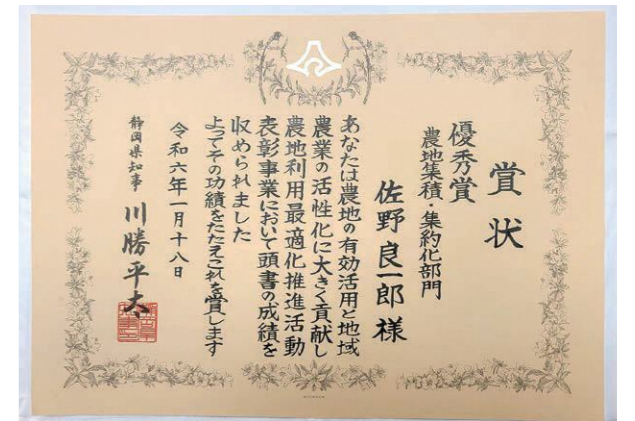 賞状
優秀賞
農地集積・集約化部門
佐野良一郎様
あなたは農地の有効活用と地域
農業の活性化に大きく貢献し
農地利用最適化推進活動
表彰事業において頭書の成績を
収められました
よってその功績をたたえこれを賞します
令和六年一月十八日
静岡県知事 川勝平太